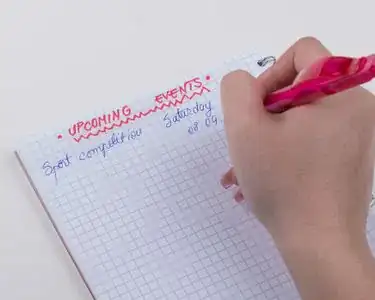 • UPCOMING EVENTS •
Sport competition Saturday
08 09.